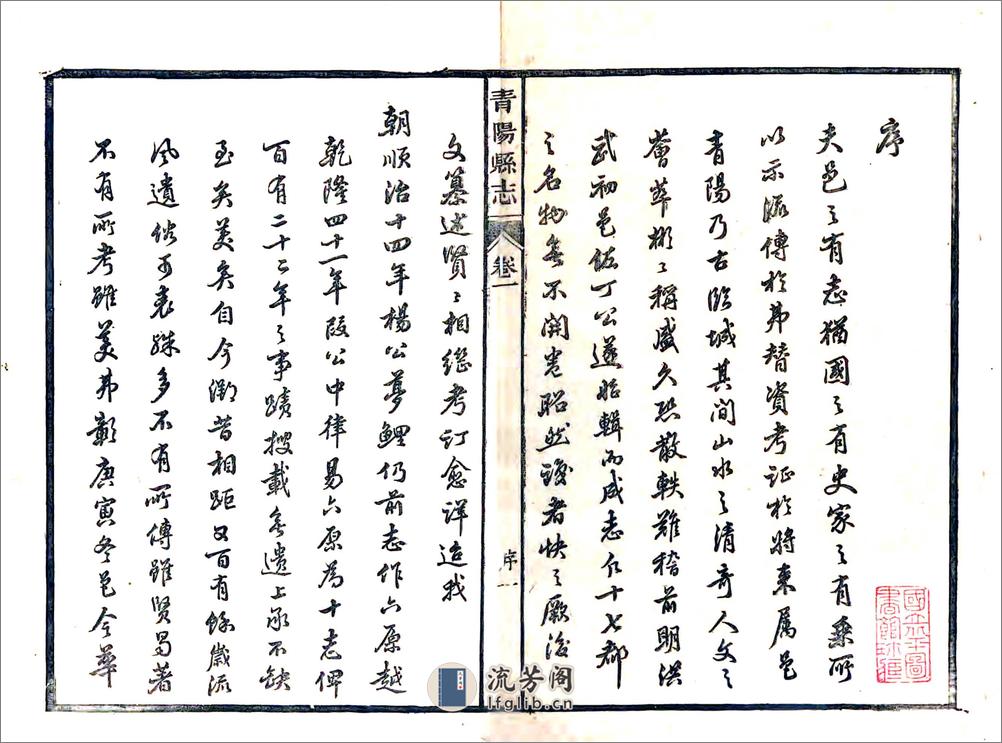 序
夫邑之有志猶國之有史家之有乘所
以示流傳於弗替資考证於將来属邑
青陽乃古臨城其间山水之清奇人文之
薈萃彬彬稱盛久恐散軼難稽前明洪
武初邑佐丁公遂始輯而成志仁十七都
之名物無不開卷昭然讀者快之厥後
青陽縣志
卷一
序一
文纂述賢賢相継考订愈详迨我
朝順治十四年楊公夢鯉仍前志作六原越
乾隆四十一年段公中律易六原為十志俾
百有二十二年之事蹟搜載無遺上承不缺
至矣美矣自今溯昔相距又百有餘歲流
風遺俗可表殊多不有所傳雖賢曷著
不有所考雖美弗彰庚寅冬邑令華
國立北平圖書館珍藏
流芳阁
lfglib.cn